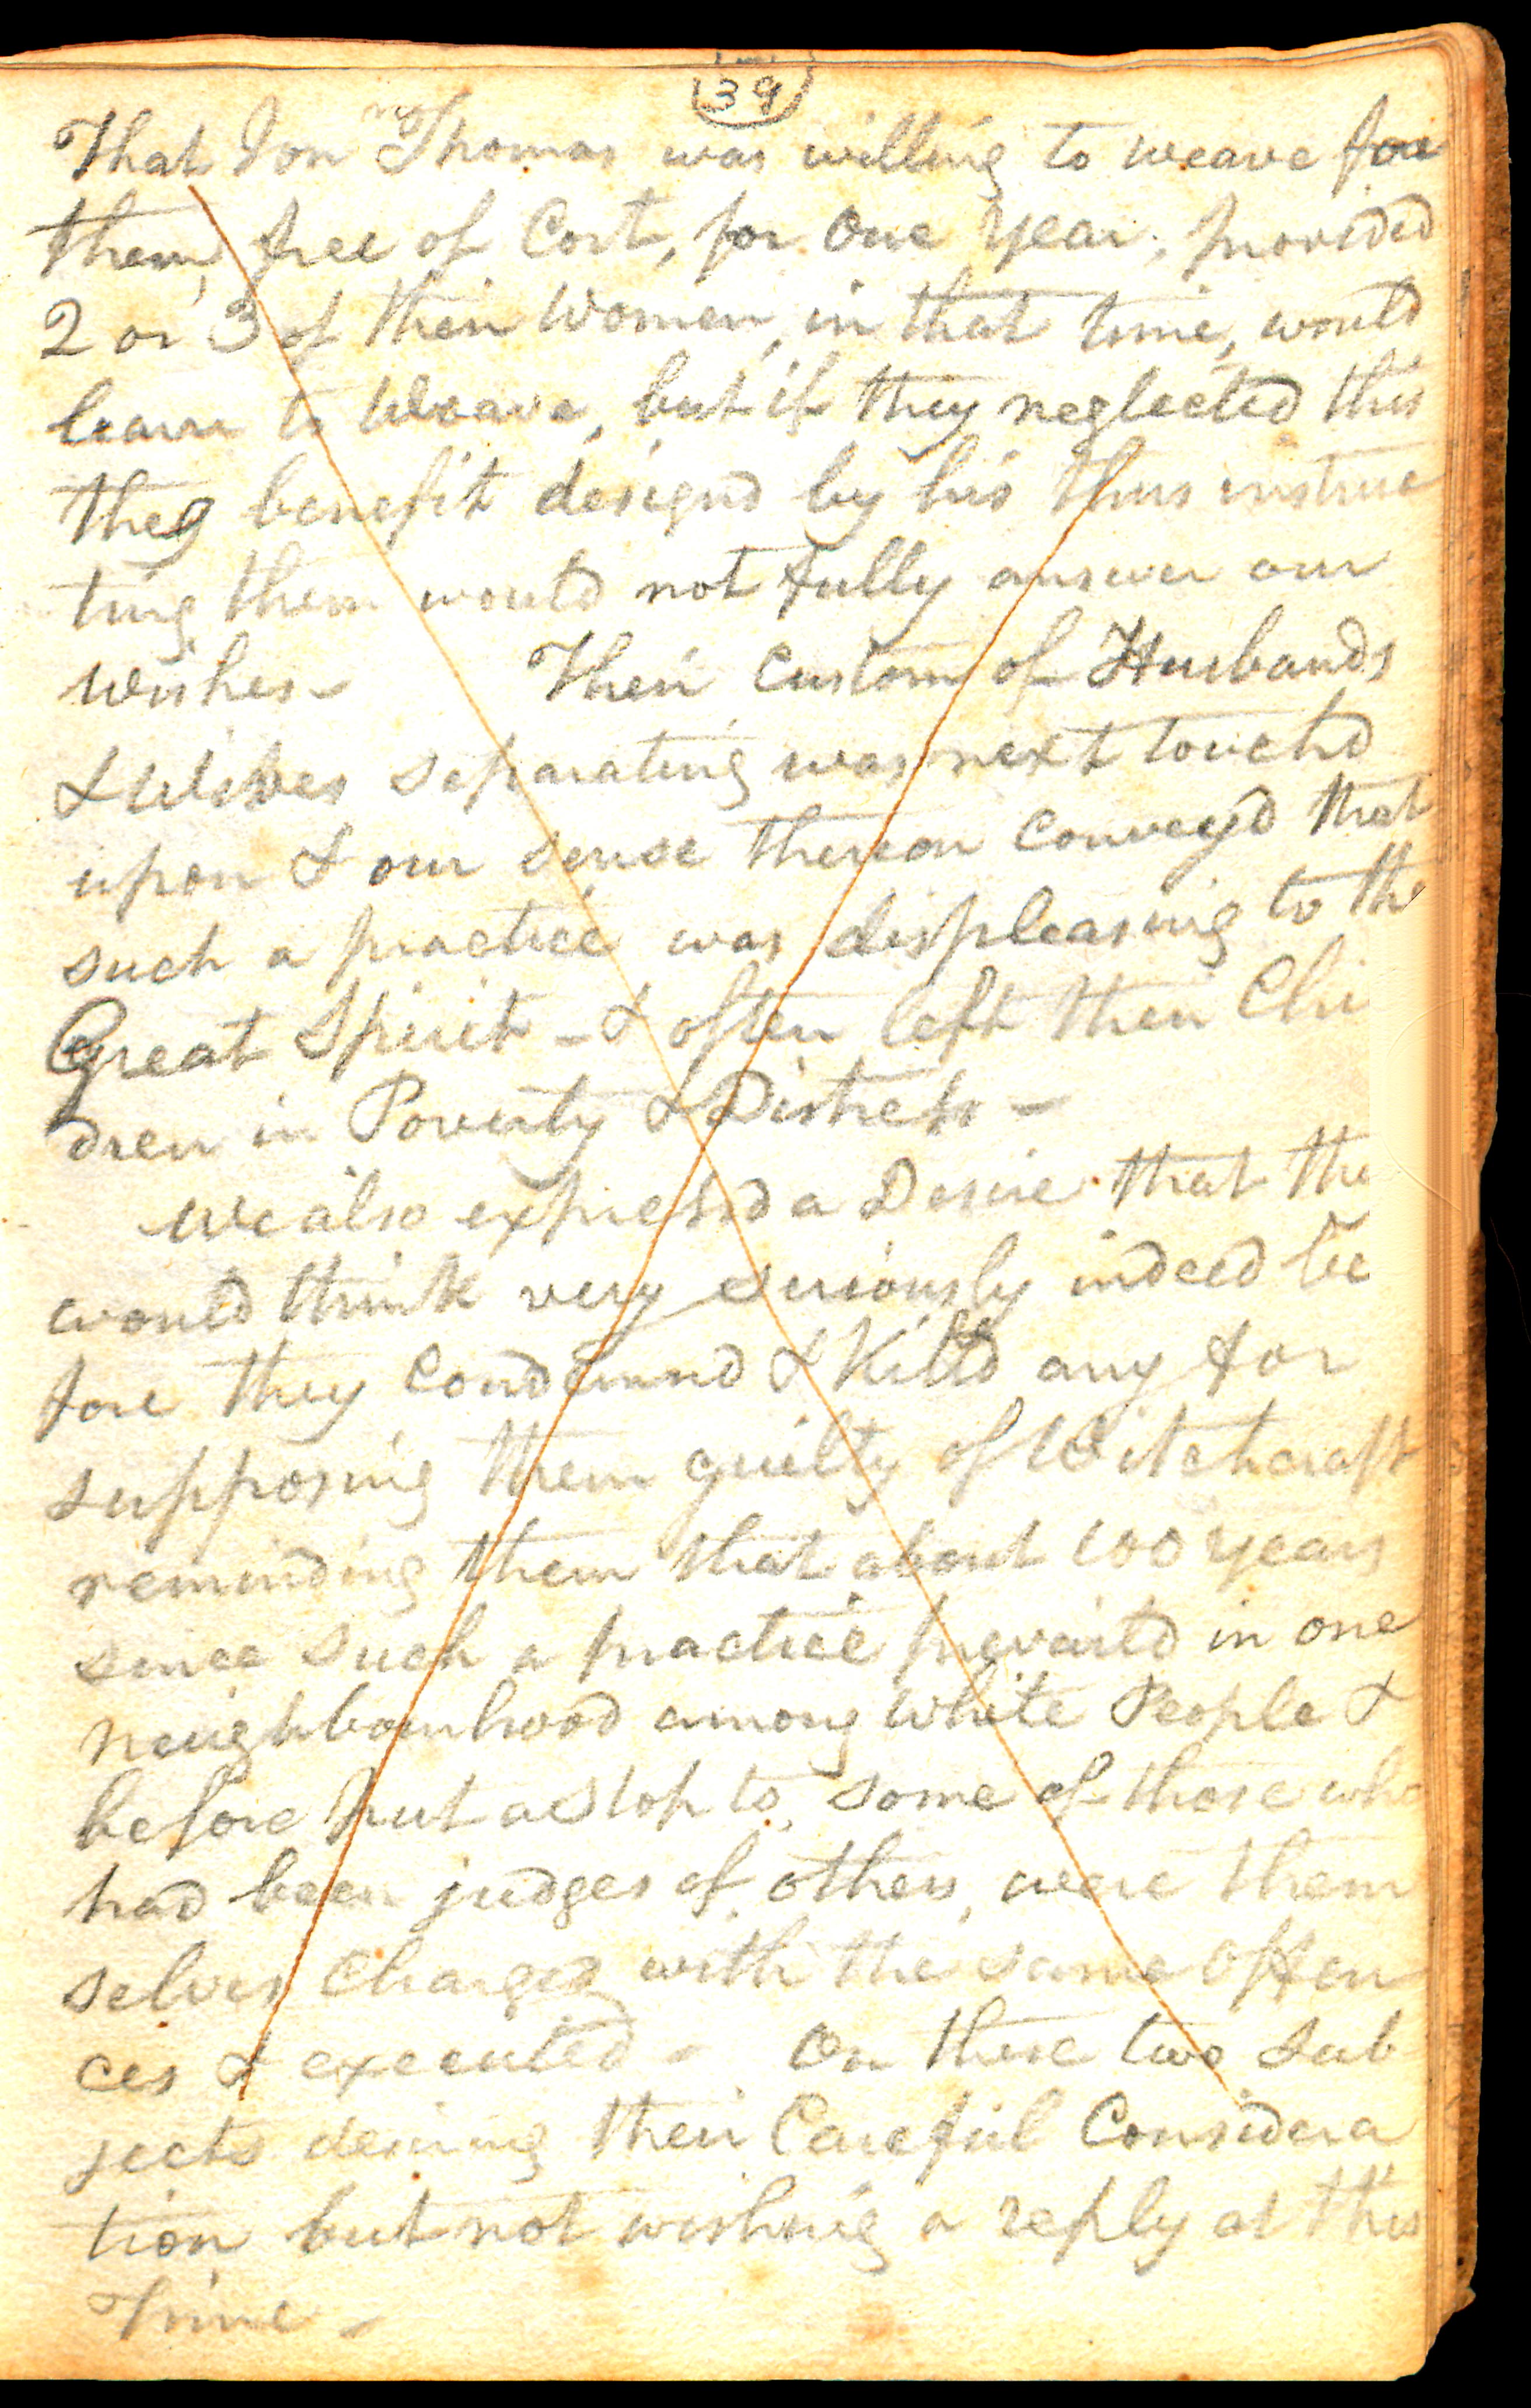 39
That Jon Thomas was willing to weave for
them, free of Cost, for One Year, provided
2 or 3 of their Women, in that time, would
learn to Weave, but if they neglected this
they benefit designd by his thus instruc
ting them would not fully answer our
Wishes - Their Custom of Husbands
& Wives separating was next touchd
upon & our sense thereon Conveyd that
such a practice was displeasing to the
Great Spirit - & often left their Chi
dren in Poverty & Distress -
We also expressd a Desire that the
would think very seriously indeed be
fore they Condemnd & Killd any for
supposing them guilty of Witchcraft
reminding them that about 100 years
since such a practice prevaild in one
neighbourhood among White People &
before put a Stop to, some of those who
had been judges of others, were them
selves Charged with the same Offen
ces & executed - On these two Sub
jects desiring their Careful Considera
tion but not wishing a reply at this
Time -